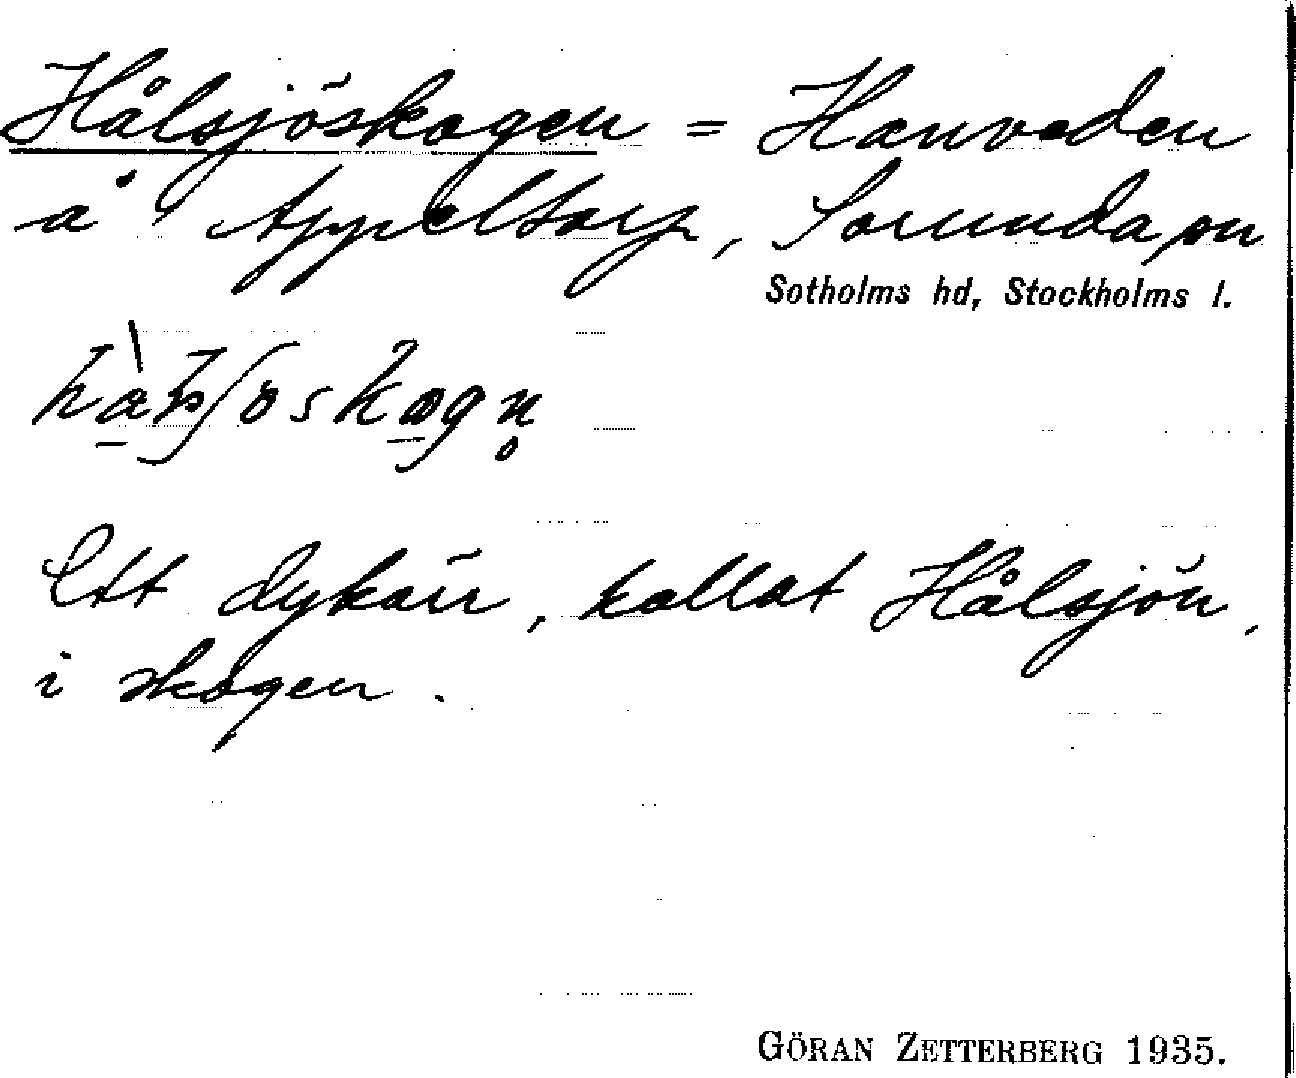 Hålsjöskogen = Hanveden
å Appeltorp, Sorunda sn
Sotholms hd, Stockholms l.
Ett dykärr, kallat Hålsjön,
i skogen.
GÖRAN ZETTERBERG 1935.